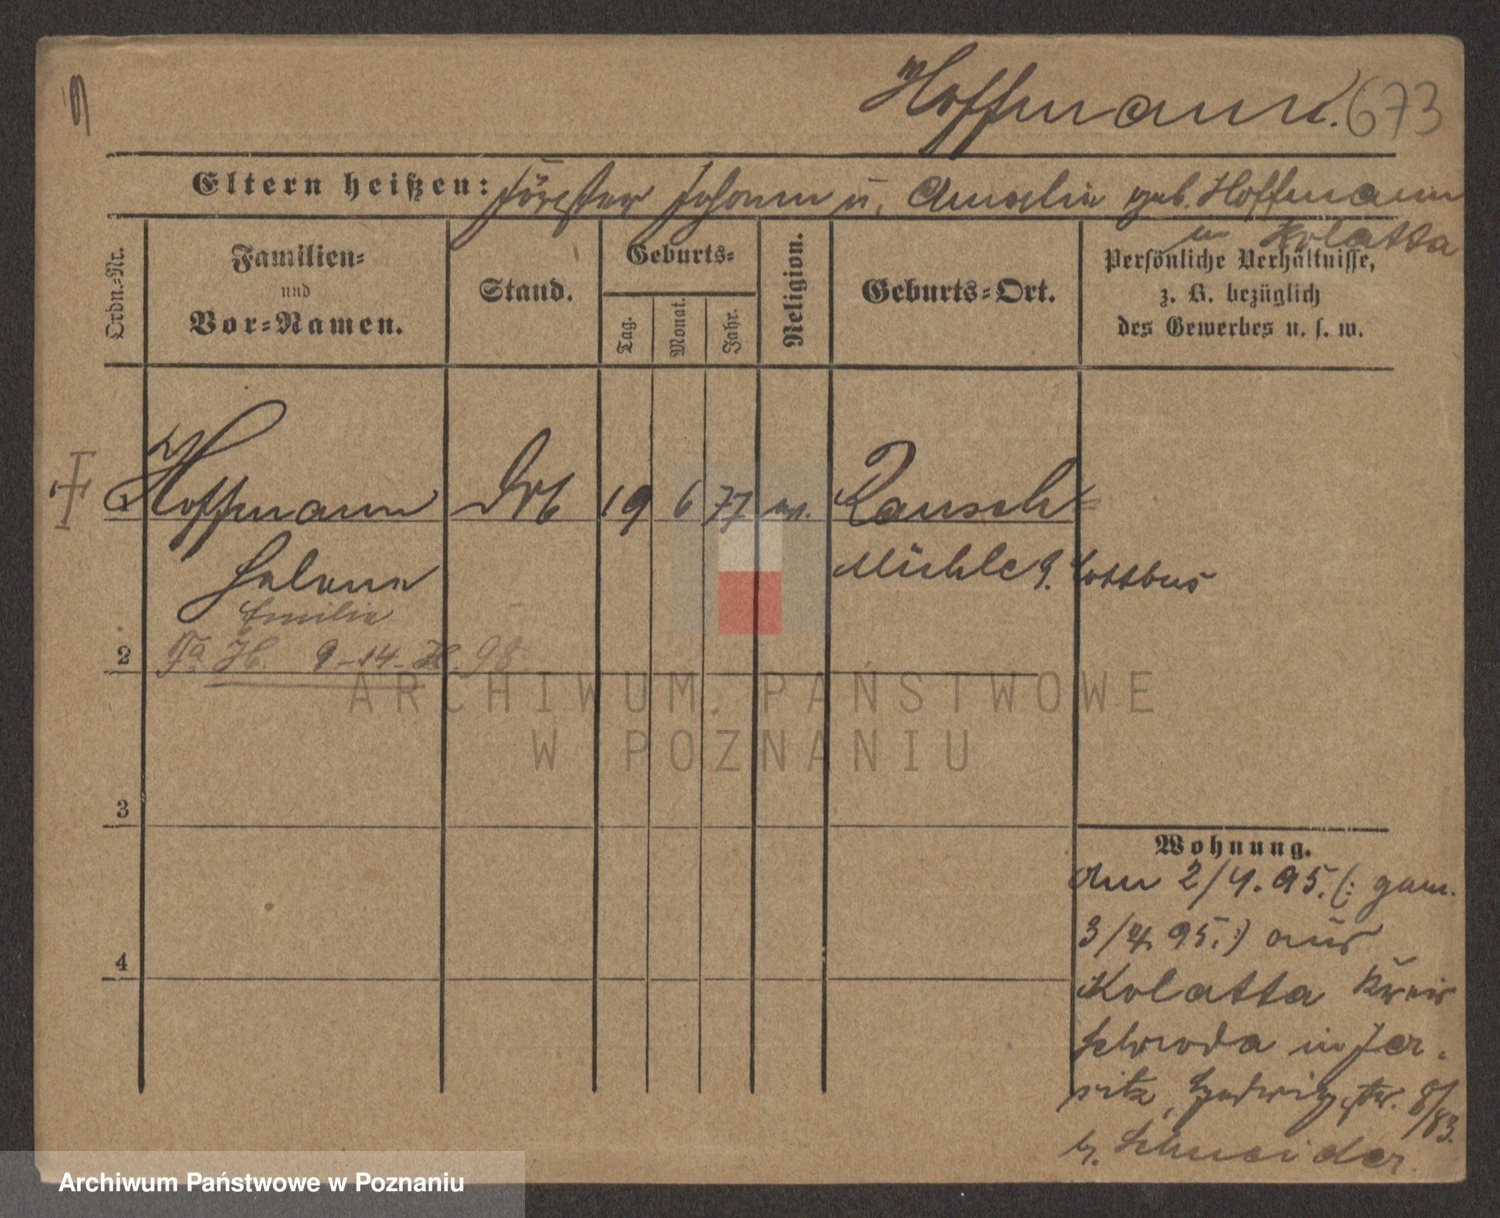 Hoffmann. 673
Eltern heißen: Förster Johann u. Amalie geb. Hoffmann
in Kolatta
Ordn.-Nr.
Familien-
und
Vor-Namen.
Stand.
Geburts-
Tag.
Monat.
Jahr.
Religion.
Geburts-Ort.
Persönliche Verhältnisse,
z. B. bezüglich
des Gewerbes u. s. w.
Hoffmann 19 6 77 ev. Rausch
Helene Mühle Cottbus
Emilie
2 9-14 98
ARCHIWUM PAŃSTWOWE
W POZNANIU
3
4
Wohnung.
am 2/4. 95. (: gem.
3/4. 95. :) aus
Kolatta Kreis
Schroda in Jer-
sitz, Hedwigstr. 8/83.
b. Schneider
Archiwum Państwowe w Poznaniu